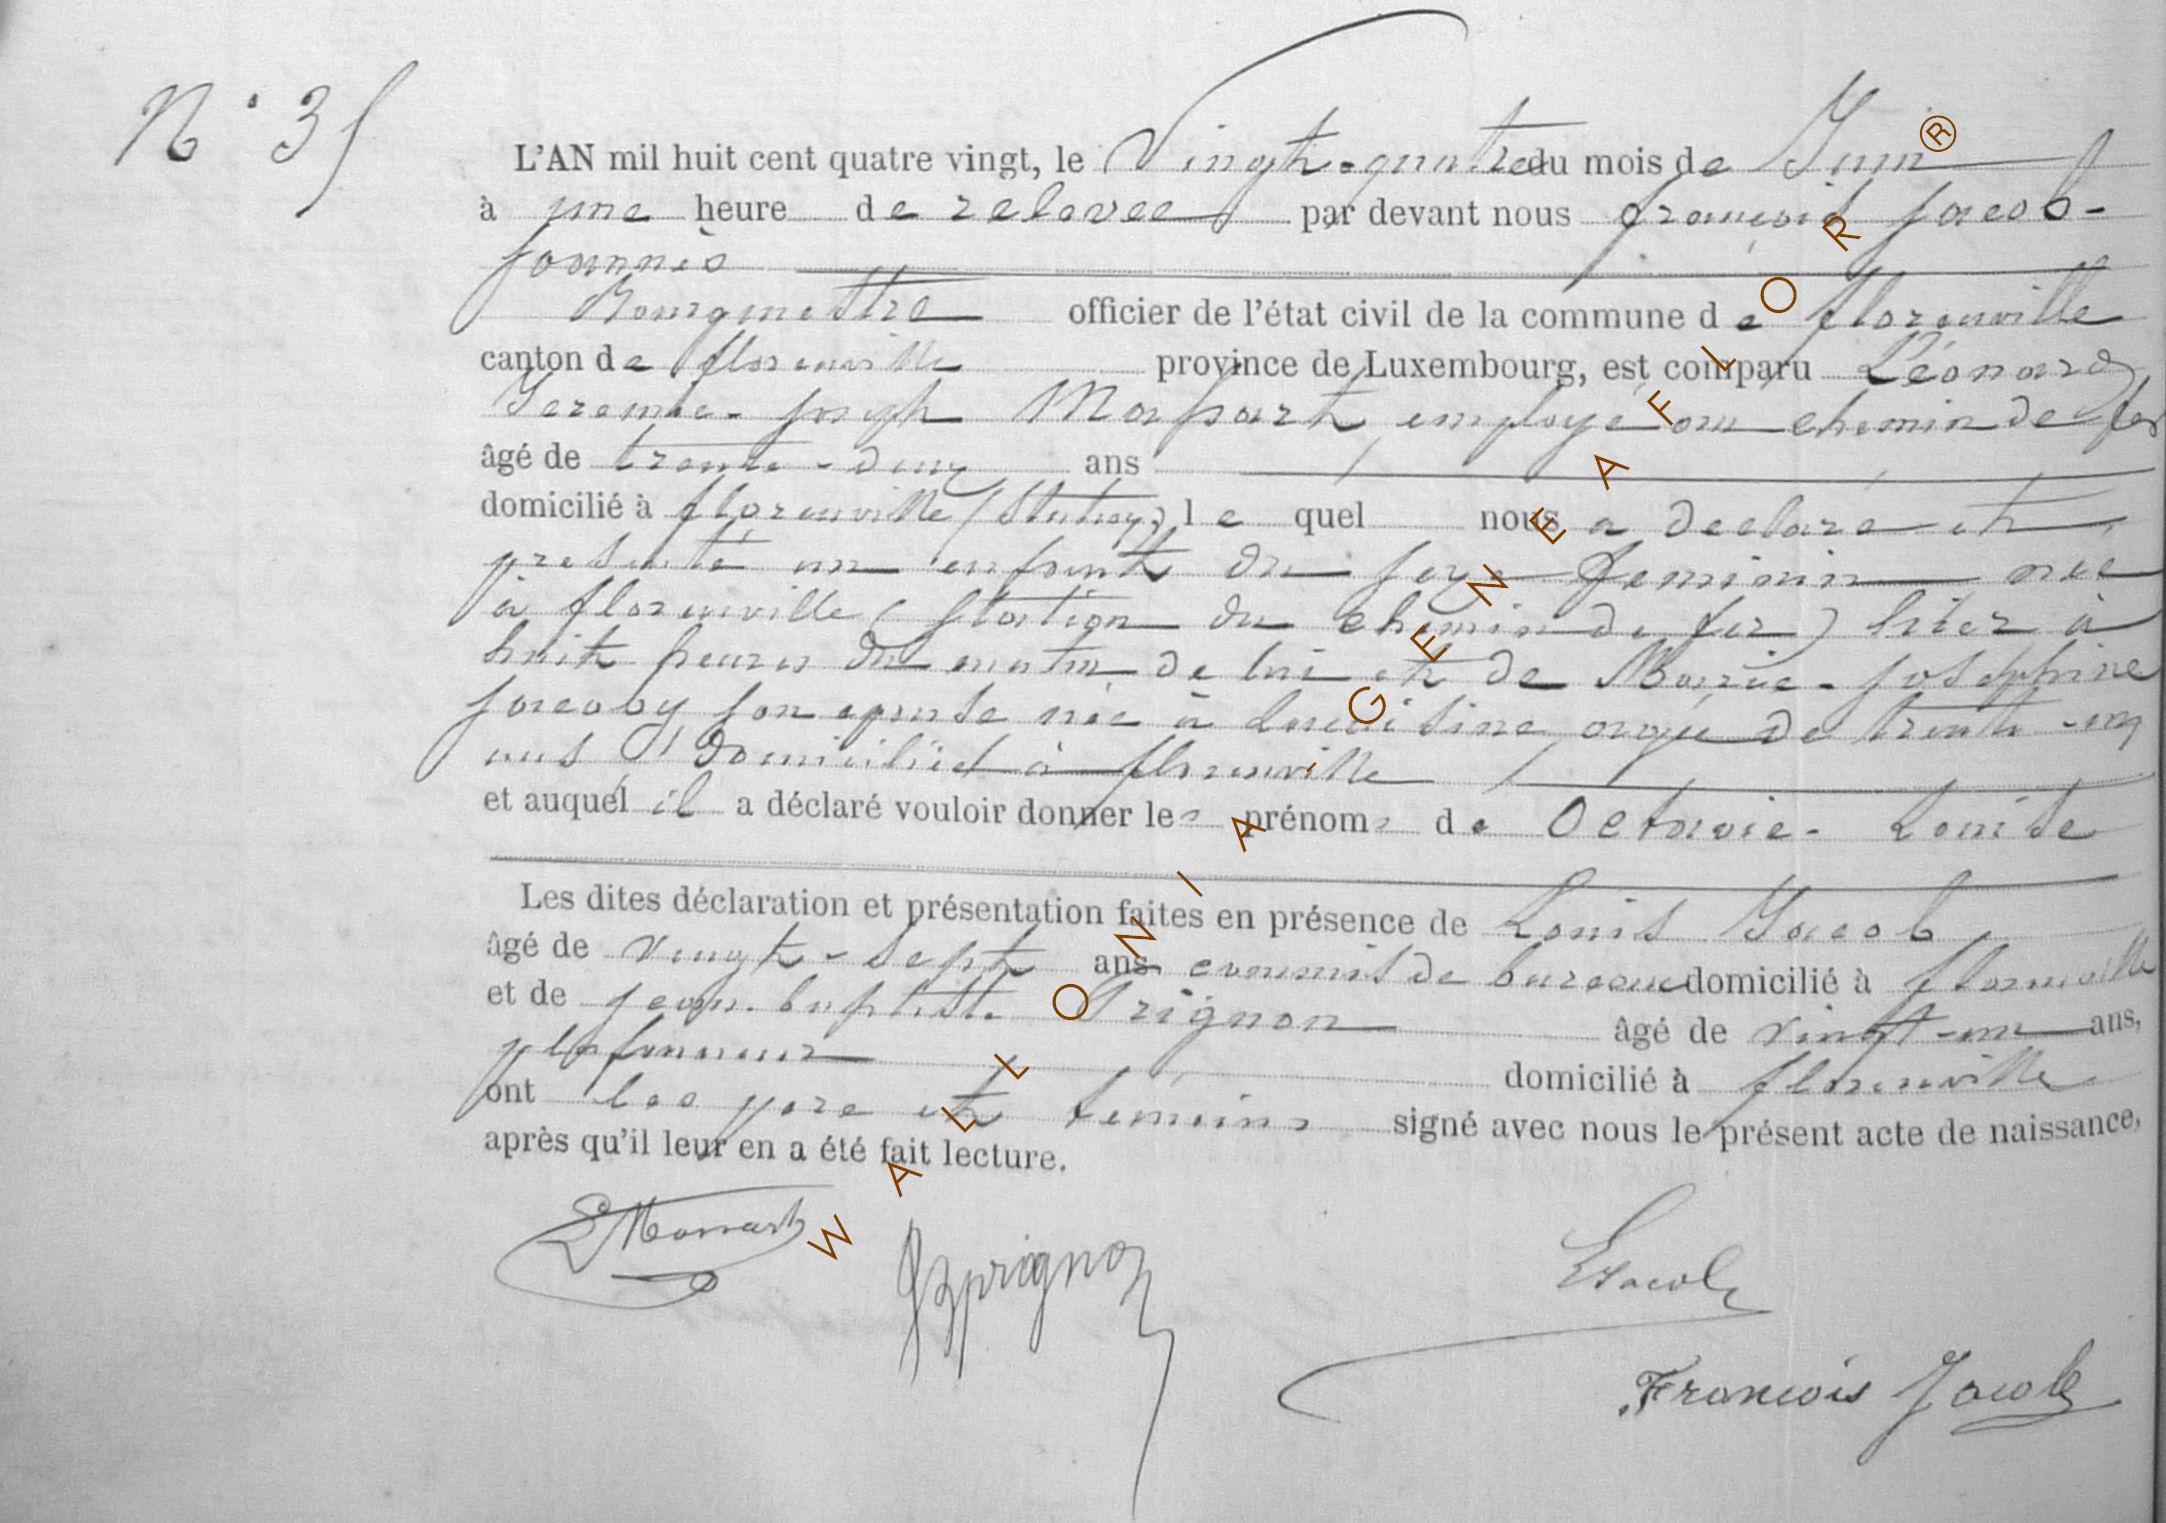 N° 35
L'AN mil huit cent quatre vingt, le Vingt-quatre du mois de Juin
à une heure de relevée par devant nous françois Jacob-
Jouannès
Bourgmestre officier de l'état civil de la commune de florenville
canton de florenville province de Luxembourg, est comparu Léonard
Jeremie-Joseph employé au chemin de fer
âgé de trente-deux ans
domicilié à florenville (Station) le quel nous a déclaré et
presenté un enfant du sexe feminin née
à florenville (Station du chemin de fer) hier à
huit heures du matin de lui et de Marie-Josephine
Jacoby son epouse née à âgée de trente-un
ans domiciliés à florenville
et auquel il a déclaré vouloir donner les prénoms de Octavie-Louise
Les dites déclaration et présentation faites en présence de Louis Jacob
âgé de vingt-sept ans commis de bureau domicilié à florenville
et de jean-baptiste Prignon âgé de vingt-un ans,
plafonneur domicilié à florenville
ont les pere et temoins signé avec nous le présent acte de naissance,
après qu'il leur en a été fait lecture.
JBprignon
LJacob
François Jacob
WALLONIA-GENEAFLOR®